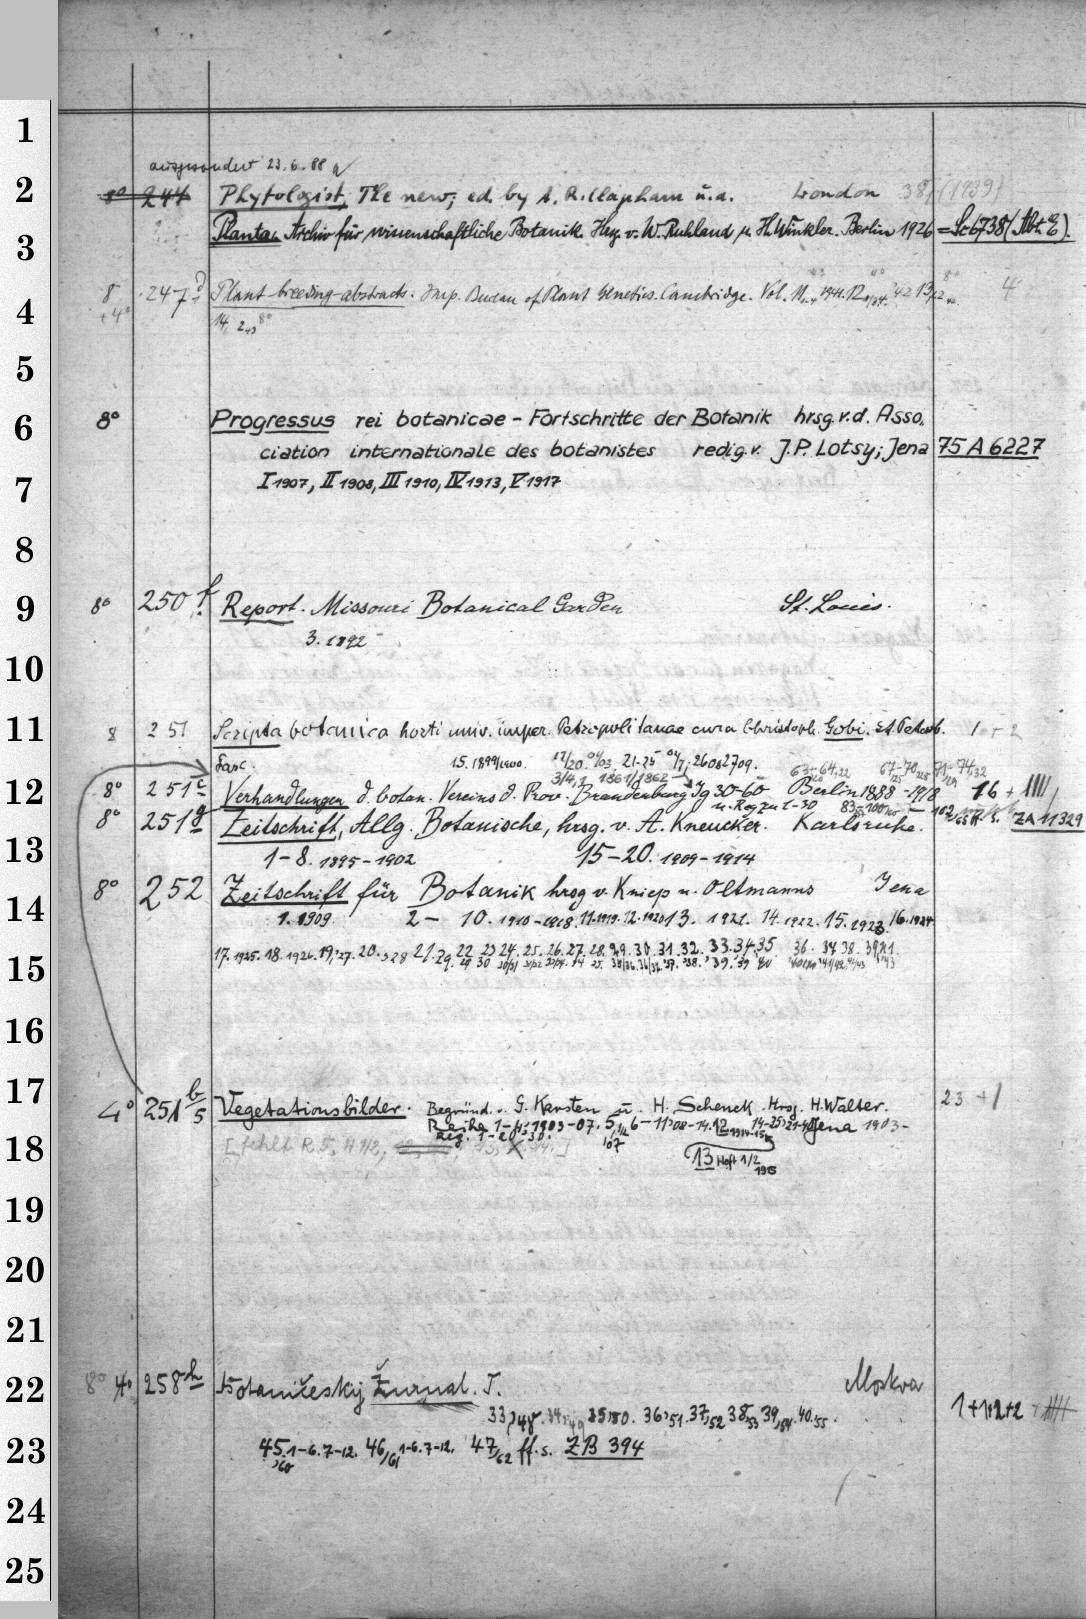 ausgesondert 23.6.88
8° 244 Phytologist, The new, ed. by A. R. Clapham u.a. London 38, (1939)
Planta. Archiv für wissenschaftliche Botanik. Hrg. v. W. Ruhland u. H. Winkler. Berlin 1926 = Sc 6738 (Abt. E).
8 + 4° 247 Plant-breeding-abstracts. Imp. Bureau of Plant Genetics. Cambridge. Vol. 11 1941. 12 13 4
14, 2
8° Progressus rei botanicae - Fortschritte der Botanik hrsg. v. d. Asso,
ciation internationale des botanistes redig. v. J. P. Lotsy; Jena 75 A 6227
I 1907, II 1908, III 1910, IV 1913, V 1917
8° 250 f Report. Missouri Botanical Garden St. Louis.
3. 1892
8 251 Scripta botanica horti univ. imper. Petropolitanae cura Christoph. Gobi. St. Petersb. 1 + 2
fasc. 15. 1899/1900. 17/20. 01/03. 21-25
3/4, 1861/1862
8° 251 c Verhandlungen d. botan. Vereins d. Prov. Brandenburg Jg 30-60 Berlin 1888-1918 16 + IIII
u. Reg zu 1-30
8° 251 g Zeitschrift, Allg. Botanische, hrsg. v. A. Kneucker. Karlsruhe. ZA 11329
1-8. 1895-1902 15-20. 1909-1914
8° 252 Zeitschrift für Botanik hrsg v. Kniep u. Oltmanns Jena
1. 1909. 2 - 10. 1910-1918. 11. 1919. 12. 1920 13. 1921. 14. 1922. 15. 1923 16. 1924
17. 1925. 18. 1926. 19, '27. 20. 28 21. 22 23 24. 25. 26. 27. 28. 29. 30. 31. 32. 33. 34, 35 36. 37 38.
4° 251 b/5 Vegetationsbilder. Begründ. v. G. Karsten u. H. Schenck. Hrsg. H. Walter. 23 + 1
Reihe 1-4, 1903-07. 5, 6-11, 08-14. 12 Jena 1903-
Reg. 1-20. 30.
[fehlt R. 5, H 1/2,
13 Heft 1/2 1915
8° 4° 258 h Botaničeskij Žurnal. T. Moskva
33, 48. 34, 49 35, 50. 36, 51. 37, 52 38, 53 39, 54. 40, 55. 1+1+2+2
45, 60 1-6. 7-12. 46/61 1-6. 7-12. 47/62 ff. s. ZB 394
1
2
3
4
5
6
7
8
9
10
11
12
13
14
15
16
17
18
19
20
21
22
23
24
25